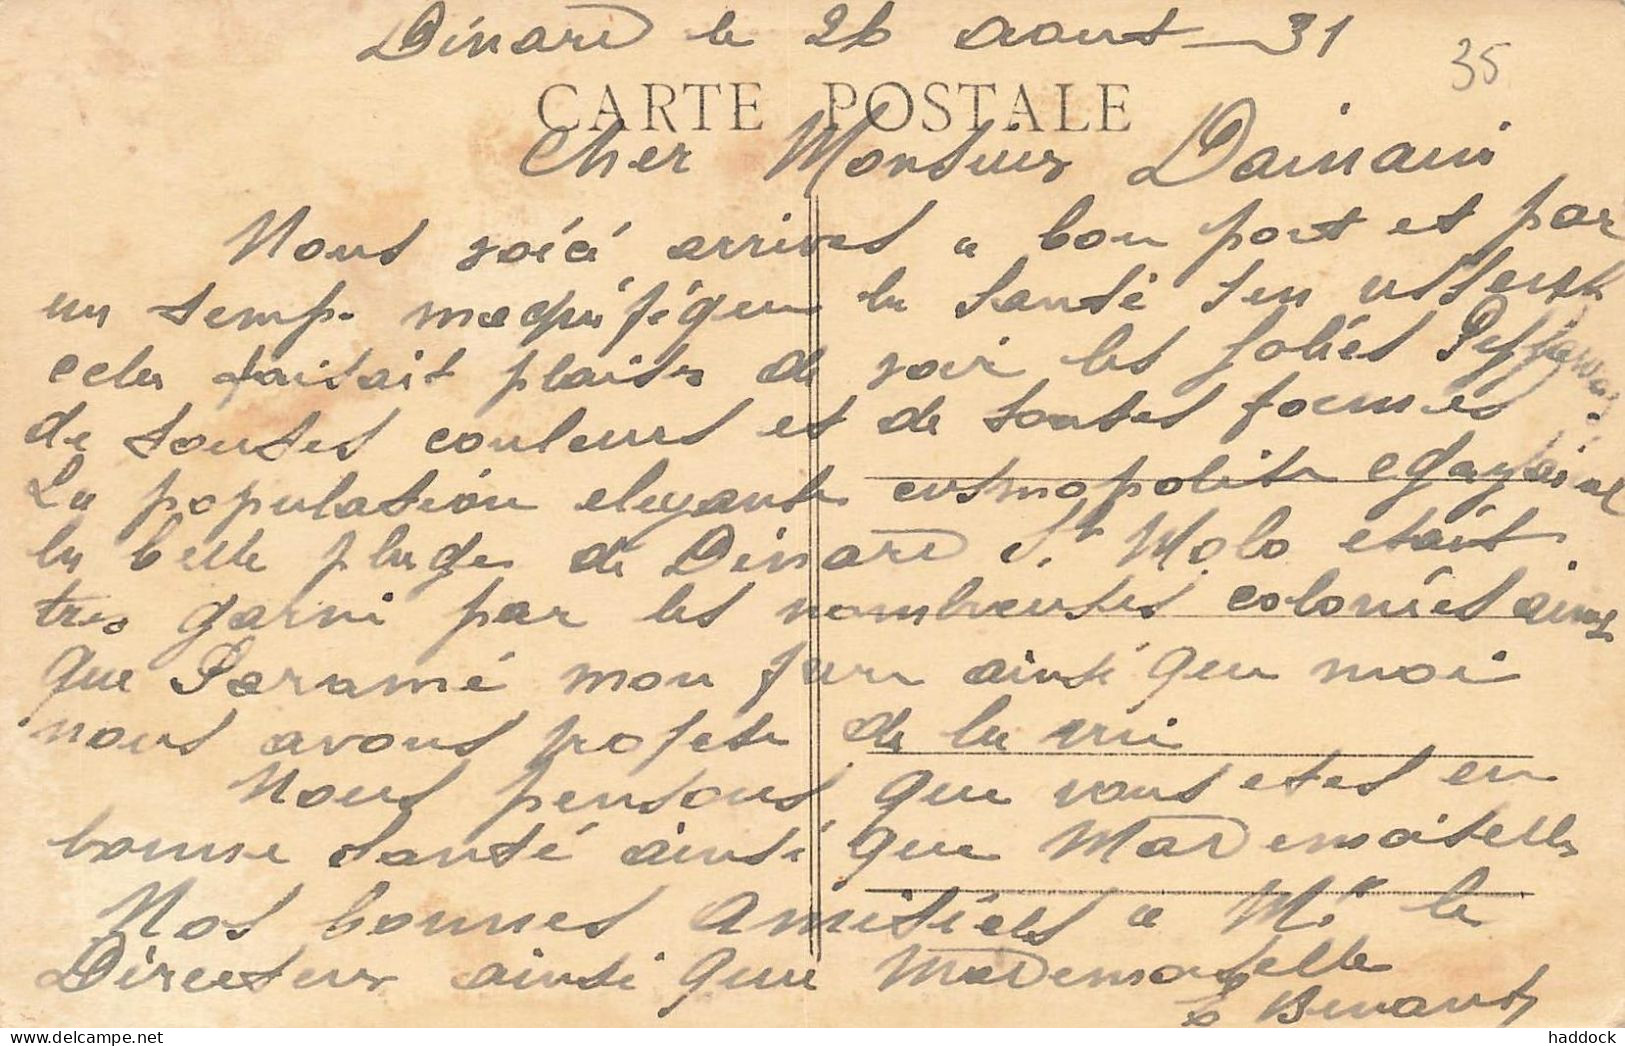 Dinard le 26 aout 31
35
CARTE POSTALE
Cher Monsieur
Nous voici arrives a bon port et par
un temp magnifique la santé
cela faisait plaisir de voir les jolies
de toutes couleurs et de toutes formes
La population elegante cosmopolite
la belle plage de Dinard St Malo etait
tres garni par les nombreuses colonies ainsi
que Paramé mon ainsi que moi
nous avons profete de la
Nous pensons que vous etes en
bonne santé ainsi que Mademoiselle
Nos bonnes amitiés a Mr le
Directeur ainsi que Mademoiselle
haddock